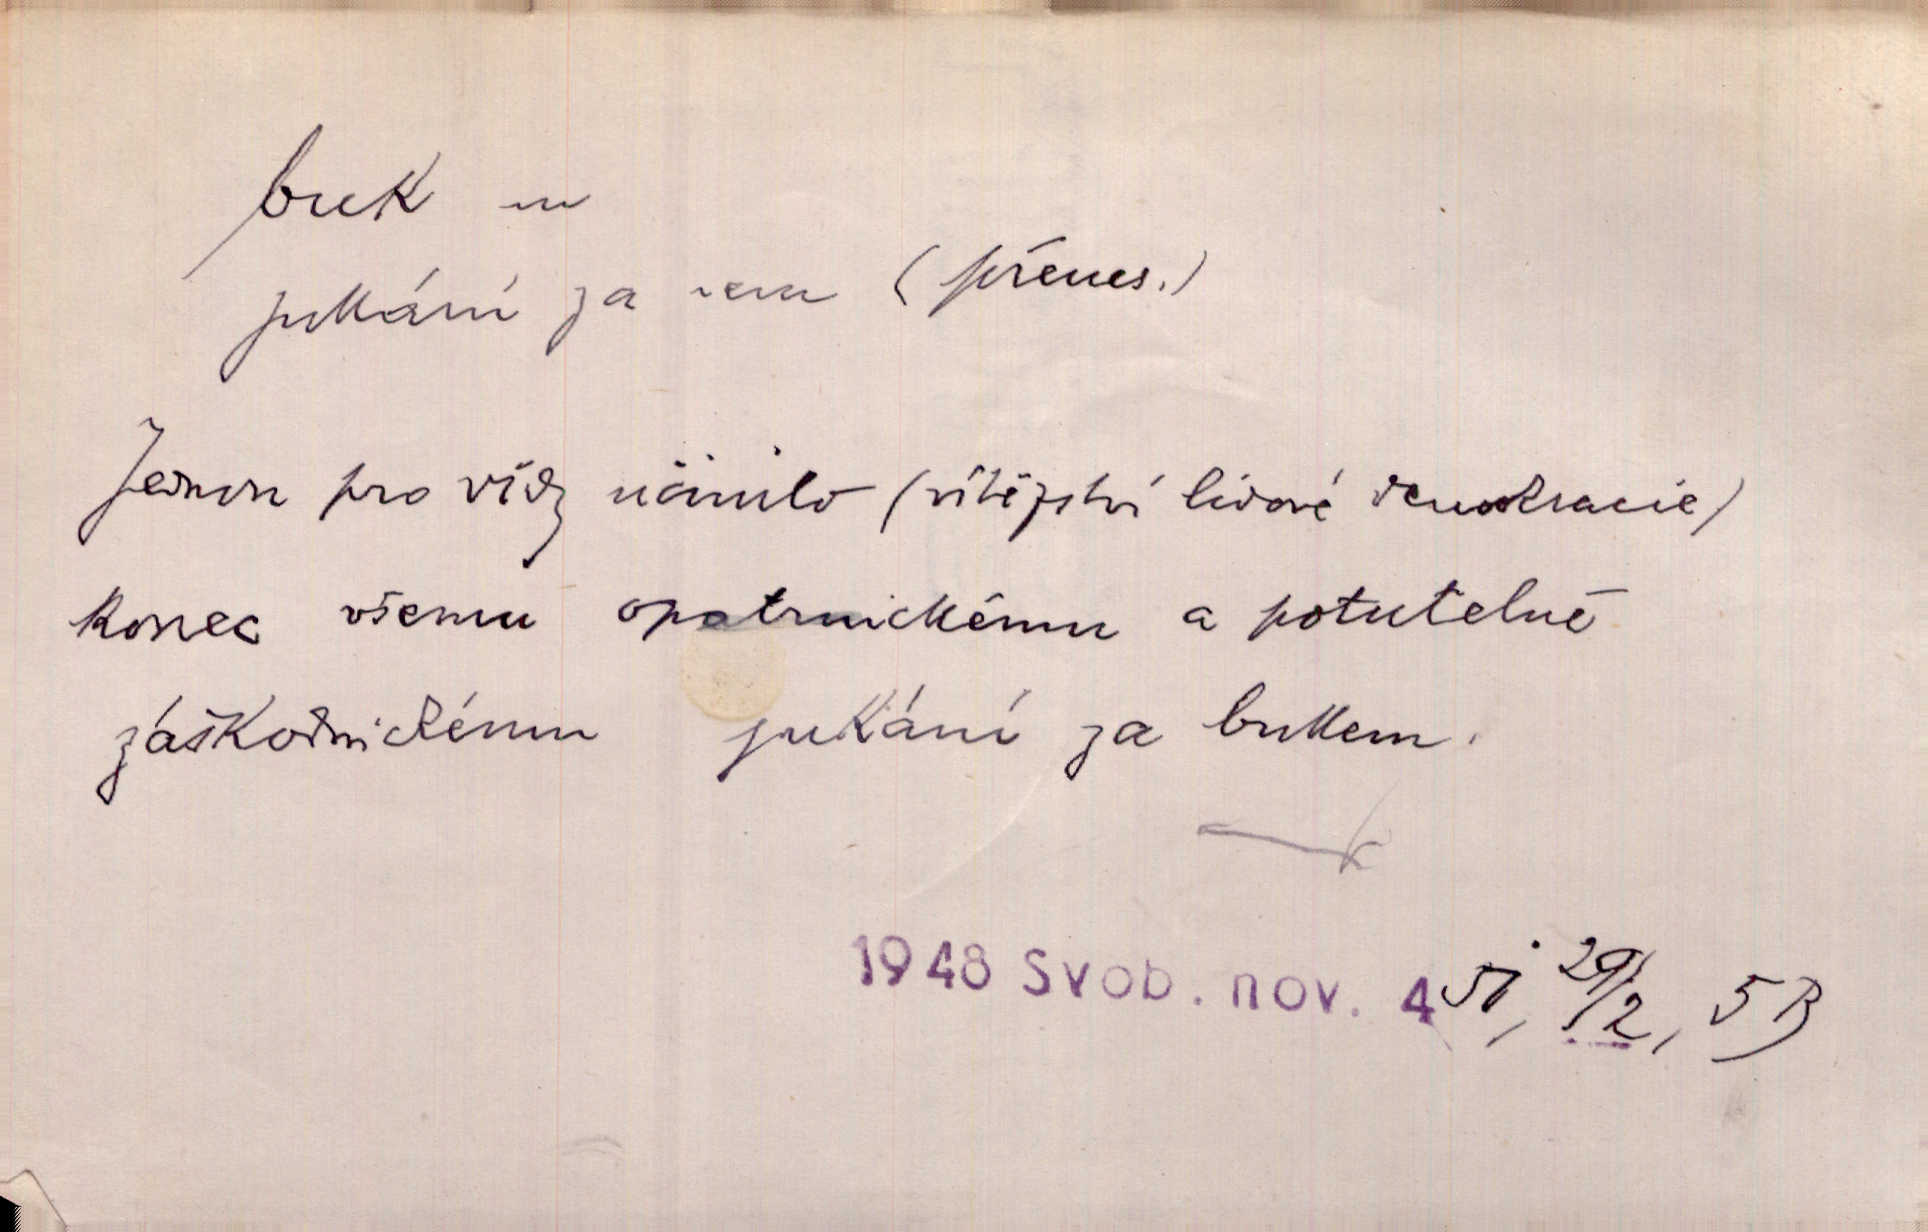 buk m
jukání za -em (přenes.)
Jednou pro vždy učinilo (vítězství lidové demokracie)
konec všemu opatrnickému a potutelně
záškodnickému jukání za bukem.
1948 Svob. nov. 4 29/2, 5 B